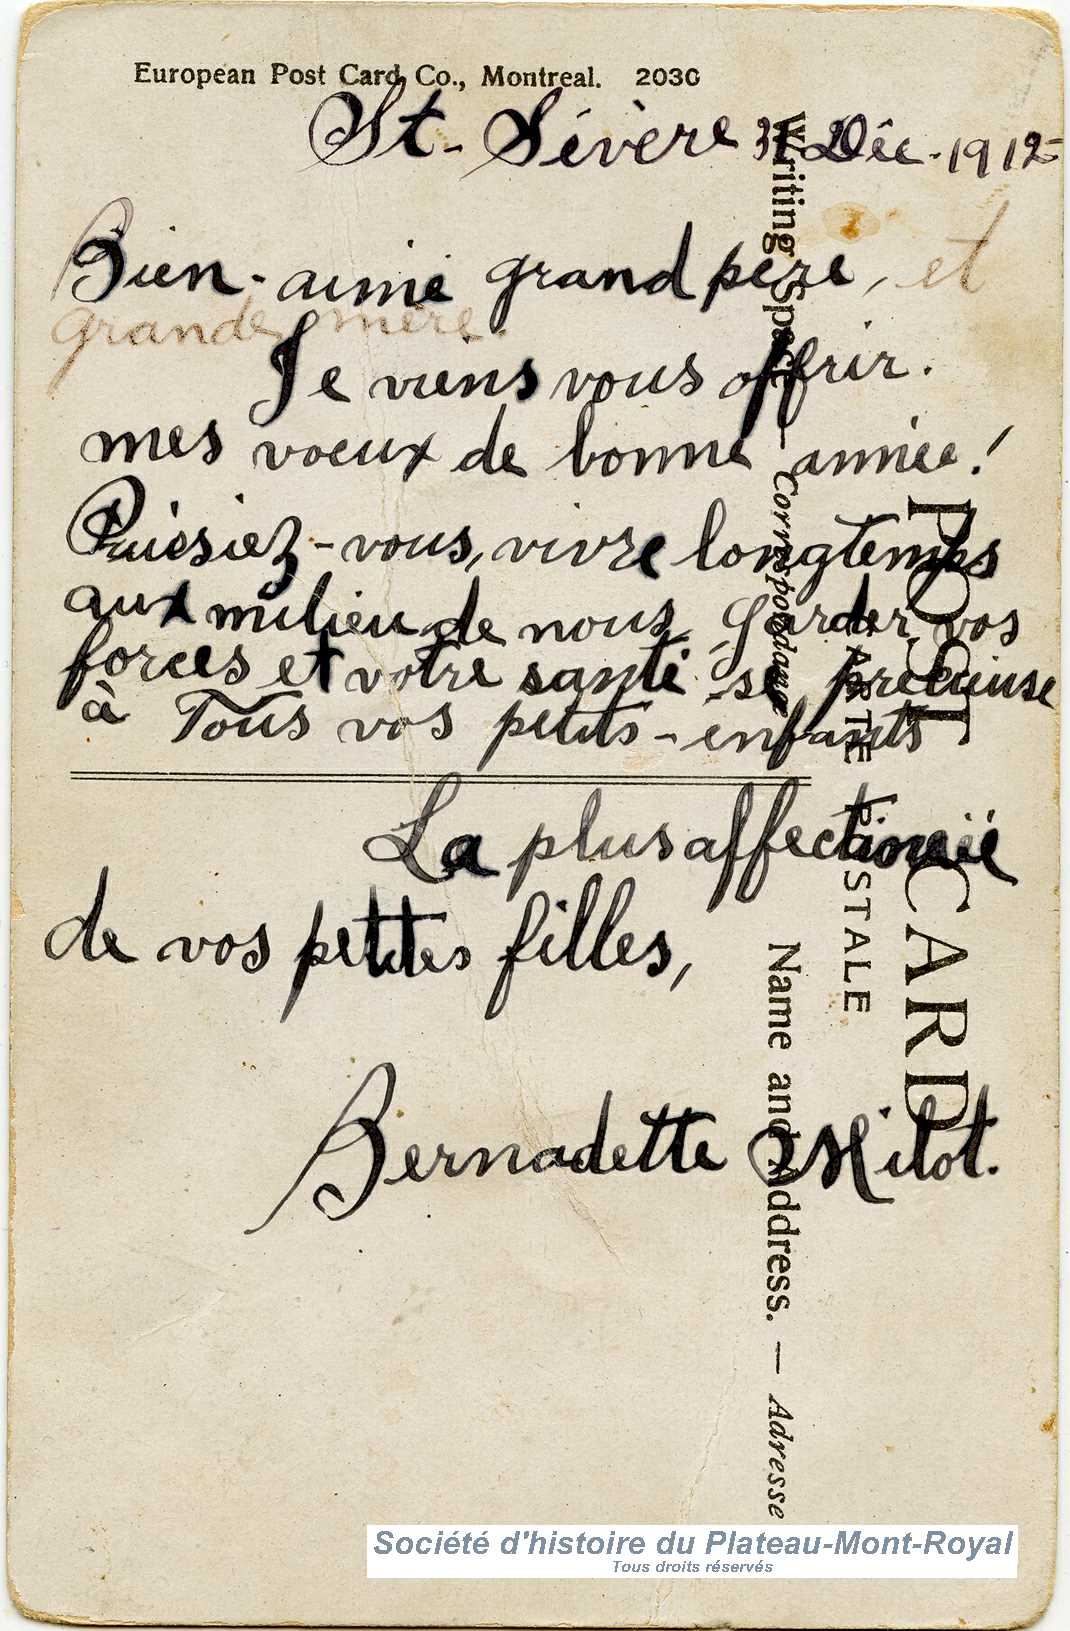 European Post Card Co., Montreal. 2030
St-Sévère 31 Déc. 1912
Bien-aimé grand père, et
grande mère.
Je viens vous offrir.
mes voeux de bonne année!
Puissiez-vous, vivre longtemps
aux milieu de nous, garder vos
forces et votre santé se précieuse
à Tous vos petits-enfants
La plus affectionnée
de vos petites filles,
Bernadette Milot.
Writing Space — Correspondance
Name and Address. — Adresse
CARTE POSTALE
POST CARD
Société d'histoire du Plateau-Mont-Royal
Tous droits réservés